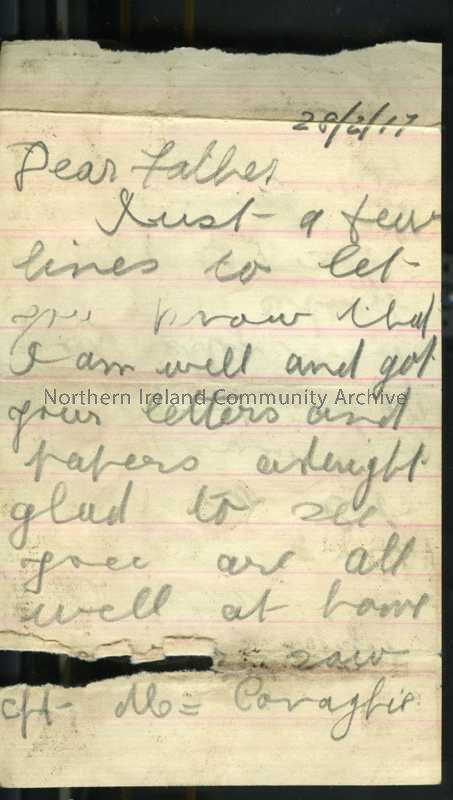 28/2/17
Dear Father
Just a few
lines to let
you know that
I am well and got
Northern Ireland Community Archive
your letters and
papers
glad to see
you are all
well at home
saw
Cpt Mc= Conaghie